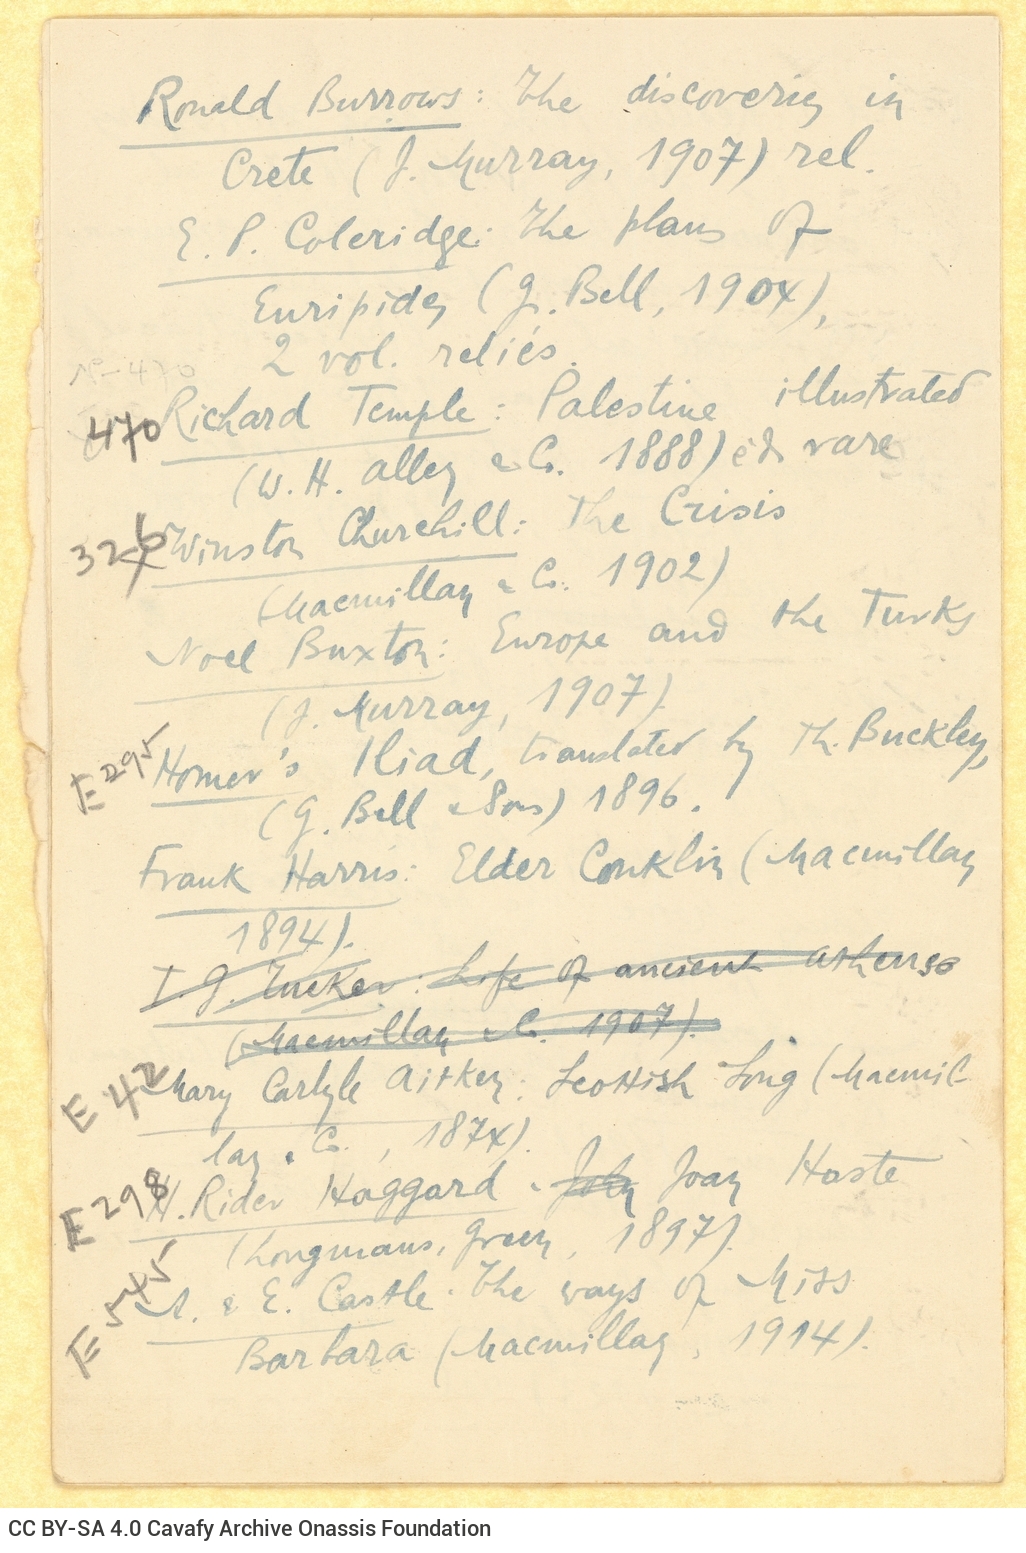 Ronald Burrows: The discovering in
Crete (J. Murray, 1907) rel.
E. P. Coleridge: The plans of
Euripides (G. Bell, 1904),
2 vol. reliés.
Nº 470
470 Richard Temple: Palestine illustrated
(W.H. Alley & Co. 1888) éd. rare
326 Winston Churchill: The Crisis
(Macmillan & Co. 1902)
Noel Buxton: Europe and the Turks
(J. Murray, 1907)
E 295 Homer's Iliad, translated by Th. Buckley,
(G. Bell & Sons) 1896.
Frank Harris: Elder Conklin (Macmillan
1894).
T. G. Tucker: Life of ancient Athenso
(Macmillan & C. 1907).
E 42 Mary Carlyle Aitken: Scottish Song (Macmil-
lan & Co., 1874).
E 298 H. Rider Haggard. John Joan Haste
(Longmans, Green, 1897).
E 545 A. & E. Castle. The ways of Miss
Barbara (Macmillan, 1914).
CC BY-SA 4.0 Cavafy Archive Onassis Foundation